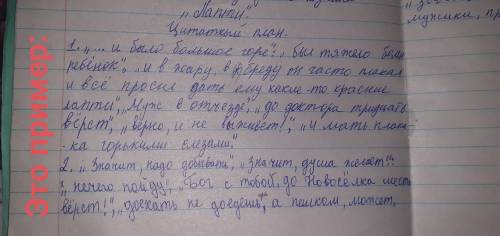 „Лапти".
Цитатный план.
1. „... и было большое горе": „был тяжело болен
ребёнок", „и в жару, в бреду он часто плакал
и всё просил дать ему какие-то красные
лапти", „Муж в отъезде", „до доктора тридцать
вёрст", „верно, и не выживет!", „И мать плака-
-ка горькими слезами."
2. „Значит, надо добывать", „Значит, душа желает":
„нечего пойду", „Бог с тобой, до Новосёлка шесть
вёрст!", „доехать не доедешь", а пешком, может,
мужики, пр
Это пример: